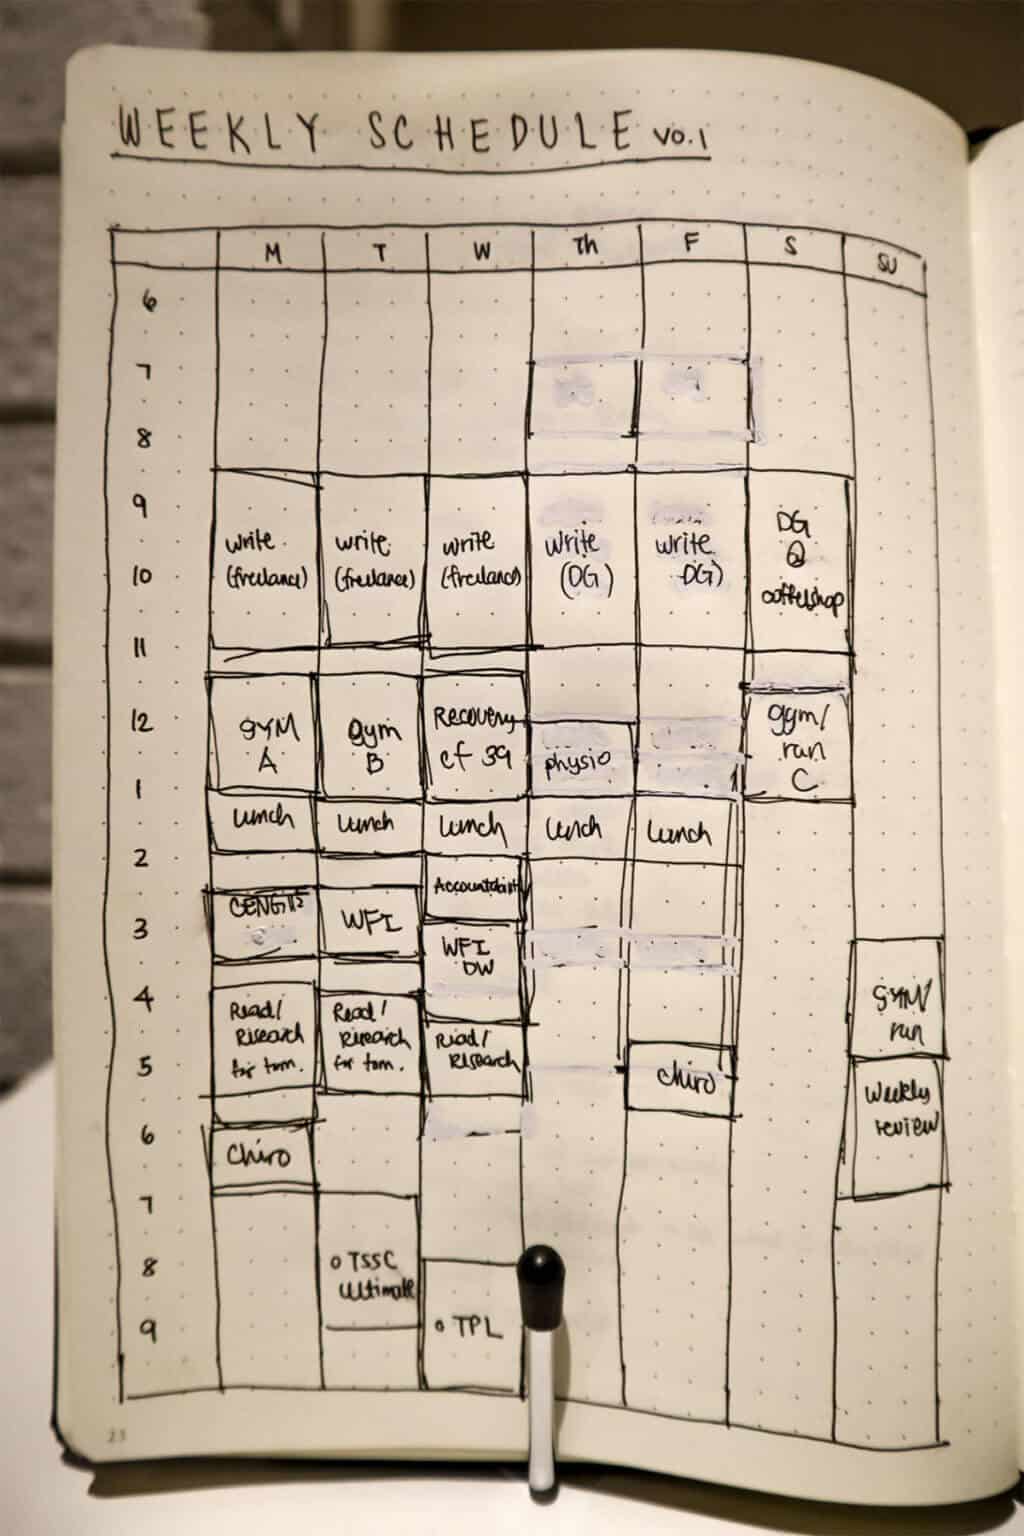 WEEKLY SCHEDULE v0.1
M T W Th F S SU
6
7
8
9
write write write write write DG
(freelance) (freelance) (freelance) (DG) DG) @
10
coffeeshop
11
12
GYM gym Recovery physio gym/
A B cf 39 run
C
1
lunch lunch lunch lunch lunch
2
Accountant
3
WFI WFI
DW
4
Read/ Read/ Read/ GYM/
Research Research Research run
for tom. for tom.
5
chiro weekly
review
6
chiro
7
8
o TSSC
ultimate
9
o TPL
23